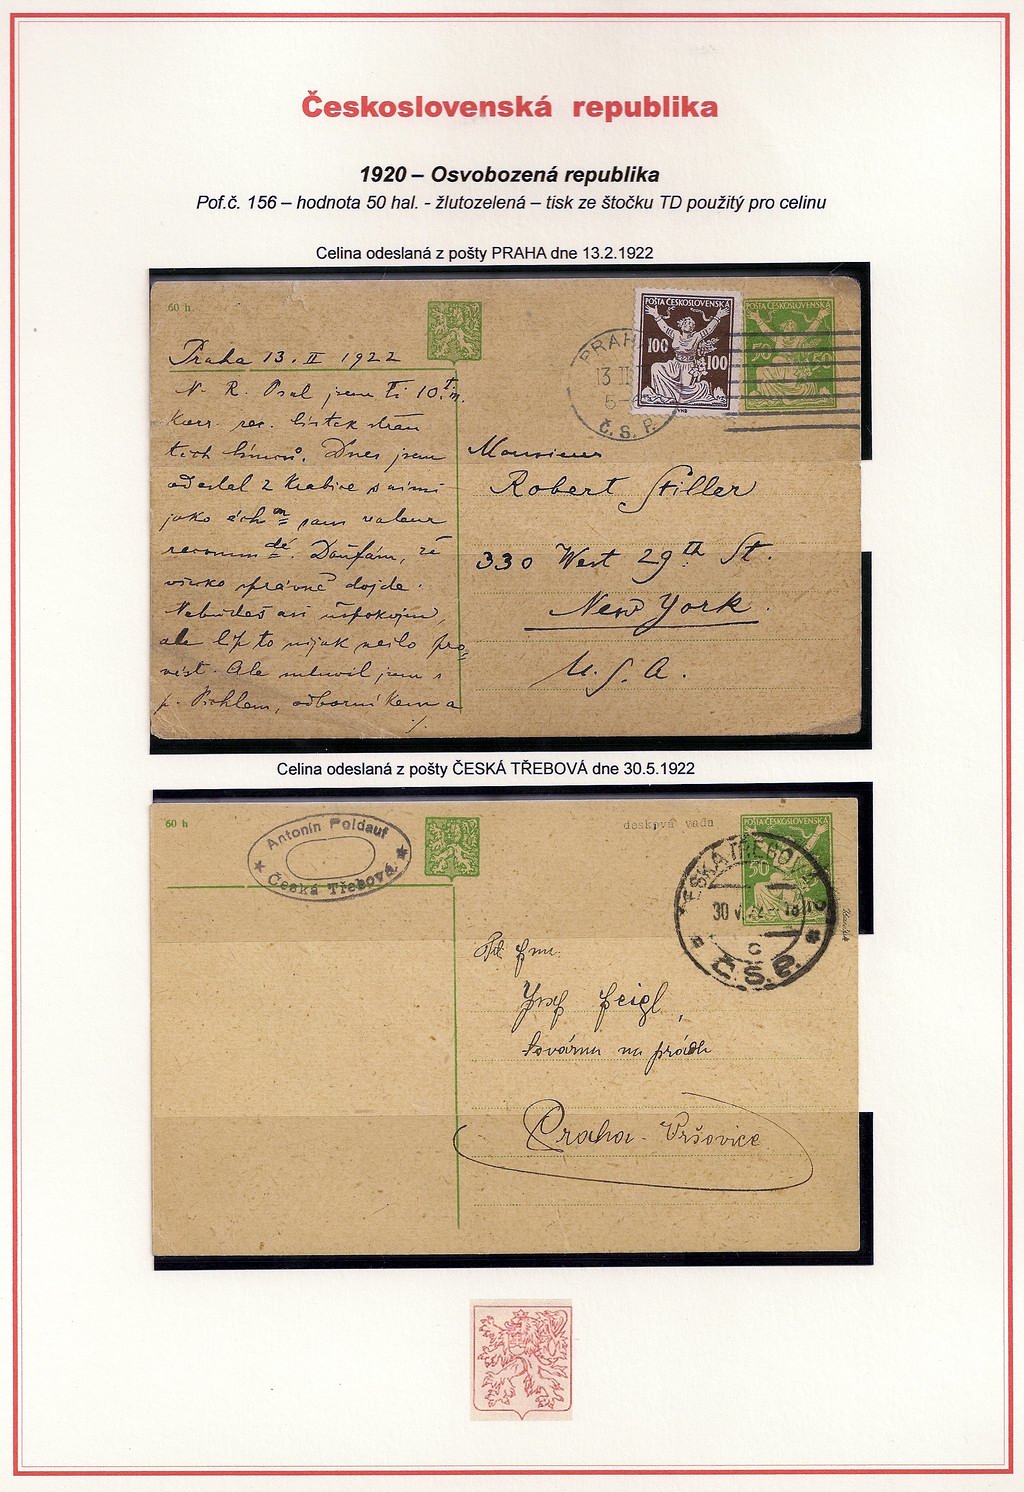 Československá republika
1920 – Osvobozená republika
Pof.č. 156 – hodnota 50 hal. - žlutozelená – tisk ze štočku TD použitý pro celinu
Celina odeslaná z pošty PRAHA dne 13.2.1922
60 h.
POŠTA ČESKOSLOVENSKÁ
100 100
POŠTA ČESKOSLOVENSKÁ
50 50
PRAHA
13 II
5-
Č. S. P.
Praha 13. II 1922
N. R. Psal jsem Ti 10. t. m.
Korr. rec. lístek stran
těch
Dnes jsem
odeslal 2 krabice s nimi
jako éch^on sans valeur
recommdé. Doufám, že
všecko správně dojde.
Nebudeš asi uspokojen,
ale to nijak nešlo pro=
vést. Ale mluvil jsem s
p. odborníkem a
./.
Monsieur
Robert Stiller
330 West 29th St.
New York.
U. S. A.
Celina odeslaná z pošty ČESKÁ TŘEBOVÁ dne 30.5.1922
60 h
Antonín Poldauf
Česká Třebová.
desková vada
POŠTA ČESKOSLOVENSKÁ
50
ČESKÁ TŘEBOVÁ 2
30 V 22 - 18
c
Č.S.P.
Josef Feigl,
továrna na prádlo
Praha - Vršovice